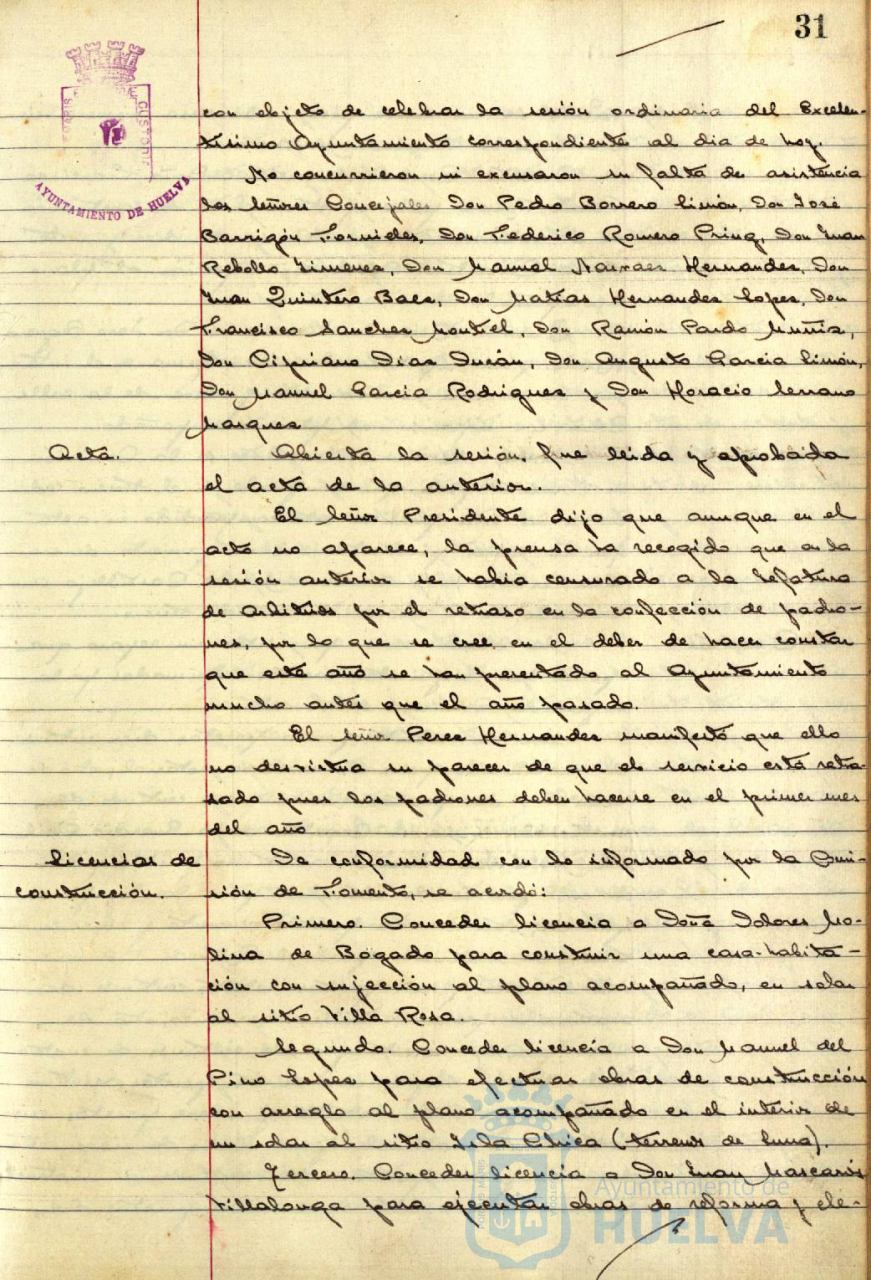 31
AYUNTAMIENTO DE HUELVA
con objeto de celebrar la sesión ordinaria del Excelen-
tísimo Ayuntamiento correspondiente al dia de hoy.
No concurrieron ni excusaron su falta de asistencia
los Señores Concejales Don Pedro Borrero Limón, Don José
Barrigón Fornieles, Don Federico Romero Pring, Don Juan
Rebollo Jimenez, Don Manuel Narvaez Hernandez, Don
Juan Quintero Baez, Don Matías Hernandez Lopez, Don
Francisco Sanchez Montiel, Don Ramón Pardo Muñiz,
Don Cipriano Diaz Durán, Don Augusto Garcia Limón,
Don Manuel Garcia Rodriguez y Don Horacio Serrano
Marquez
Acta.
Abierta la sesión, fue leida y aprobada
el acta de la anterior.
El Señor Presidente dijo que aunque en el
acta no aparece, la prensa ha recogido que en la
sesión anterior se habia censurado a la Jefatura
de Arbitrios por el retraso en la confección de padro-
nes, por lo que se cree en el deber de hacer constar
que este año se han presentado al Ayuntamiento
mucho antes que el año pasado.
El Señor Perez Hernandez manifestó que ello
no desvirtua su parecer de que el servicio está retra-
sado pues los padrones deben hacerse en el primer mes
del año
Licencias de
construcción.
De conformidad con lo informado por la Comi-
sión de Fomento, se acordó:
Primero. Conceder licencia a Doña Dolores Mo-
lina de Bogado para construir una casa-habita-
ción con sujección al plano acompañado, en solar
al sitio Villa Rosa.
Segundo. Conceder licencia a Don Manuel del
Pino Lopez para efectuar obras de construcción
con arreglo al plano acompañado en el interior de
un solar al sitio Isla Chica (terrenos de Luna).
Tercero. Conceder licencia a Don Juan Mascarós
Villalonga para ejecutar obras de reforma y ele-
Ayuntamiento de
HUELVA